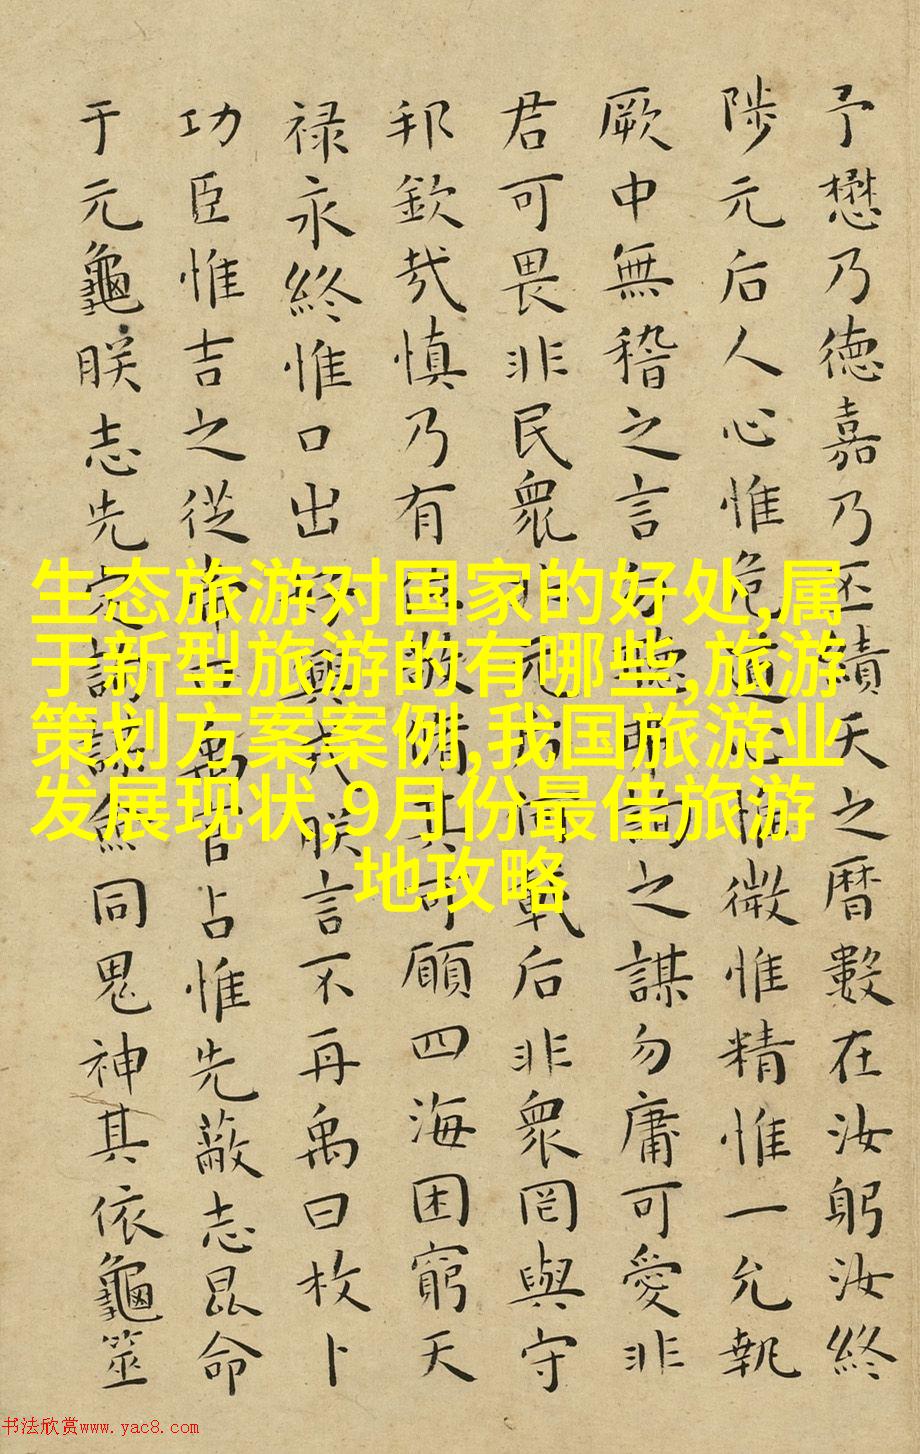 予懋乃德嘉乃丕績天之曆數在汝躬汝終
陟元后人心惟危道心惟微惟精惟一允執
厥中無稽之言勿聽弗詢之謀勿庸可愛非
君可畏非民衆非元后何戴后非衆罔與守
邦欽哉慎乃有位敬脩其可願四海困窮天
禄永終惟口出好興戎朕言不再禹曰枚卜
功臣惟吉之從帝曰禹官占惟先蔽志昆命
于元龜朕志先定詢謀僉同鬼神其依龜筮
生态旅游对国家的好处,属
于新型旅游的有哪些,旅游
策划方案案例,我国旅游业
发展现状,9月份最佳旅游
地攻略
书法欣赏www.yac8.com